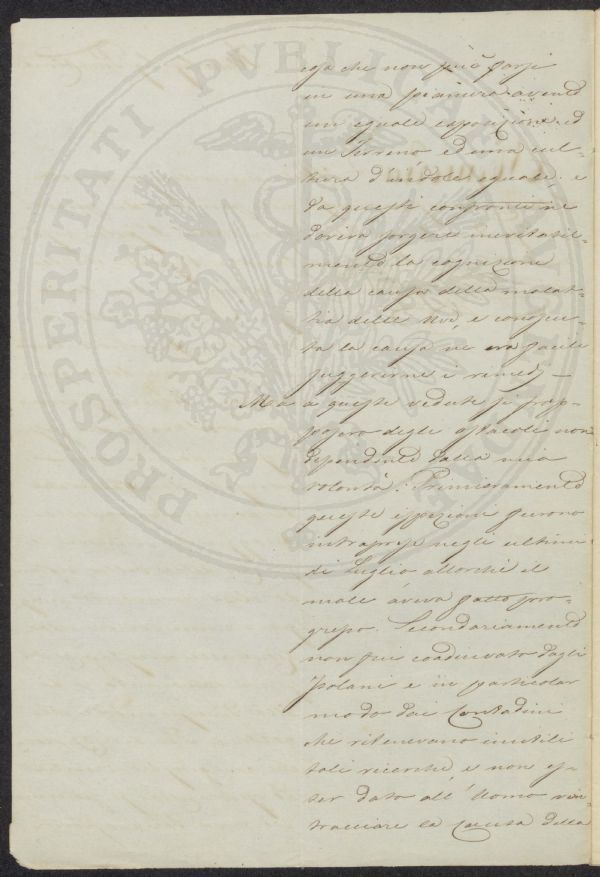 cosa che non può farsi
in una pianura avente
un eguale esposizione ed
un terreno ed una cul-
tura d'indole eguale; e
da questi confronti ne
doviva sorgere inevitabil-
mente la cognizione
della causa della malat-
tia delle uve, e conosciu-
ta la causa ne era facile
suggerirne i rimedj —
Ma a queste vedute si frap-
posero degli ostacoli non
dipendenti dalla mia
volontà. Primieramente
queste ispezioni furono
intraprese negli ultimi
di Luglio allorchè il
male aveva fatto pro-
gresso. Secondariamente
non fui coadiuvato dagli
Isolani e in particolar
modo dai Contadini
che ritenevano inutili
tali ricerche, e non es-
ser dato all'Uomo rin-
tracciare la causa della
PROSPERITATI PVBLICAE